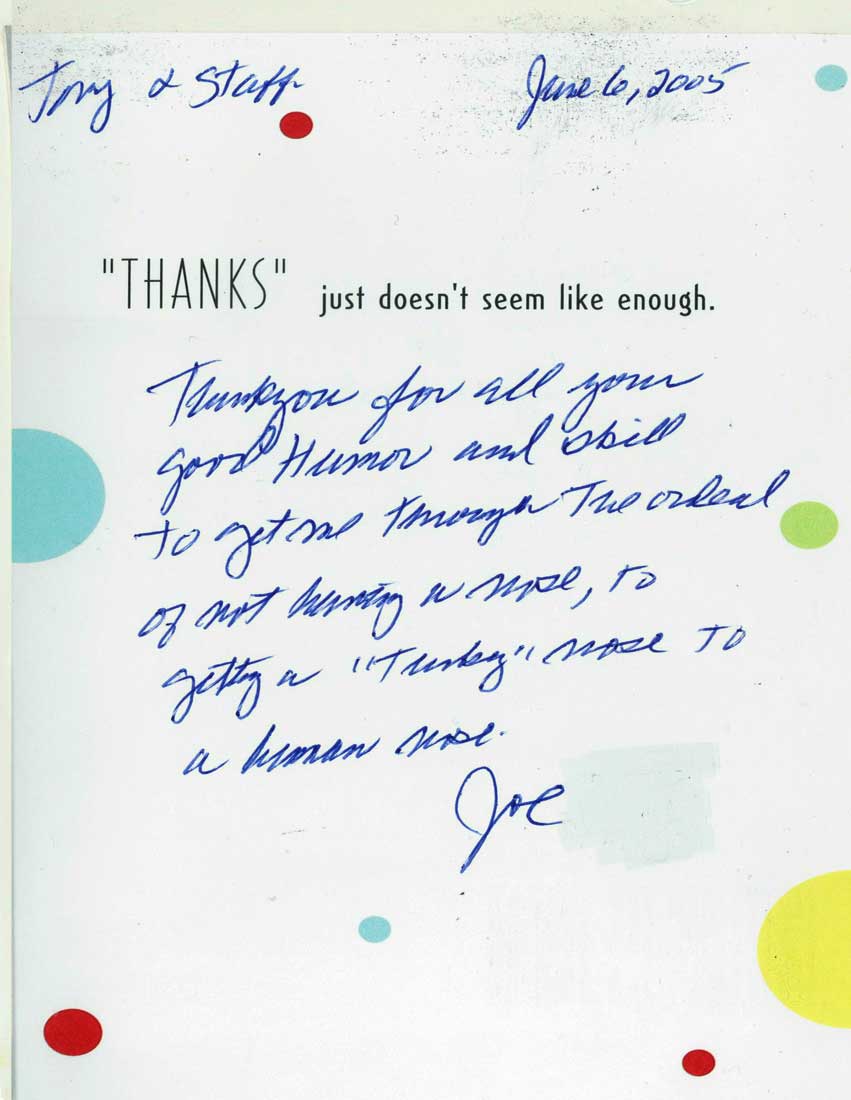 Tony & Staff June 6, 2005
"THANKS" just doesn't seem like enough.
Thankyou for all your
good Humor and skill
to get me through The ordeal
of not having a nose, to
getting a "Turkey" nose to
a human nose.
Joe